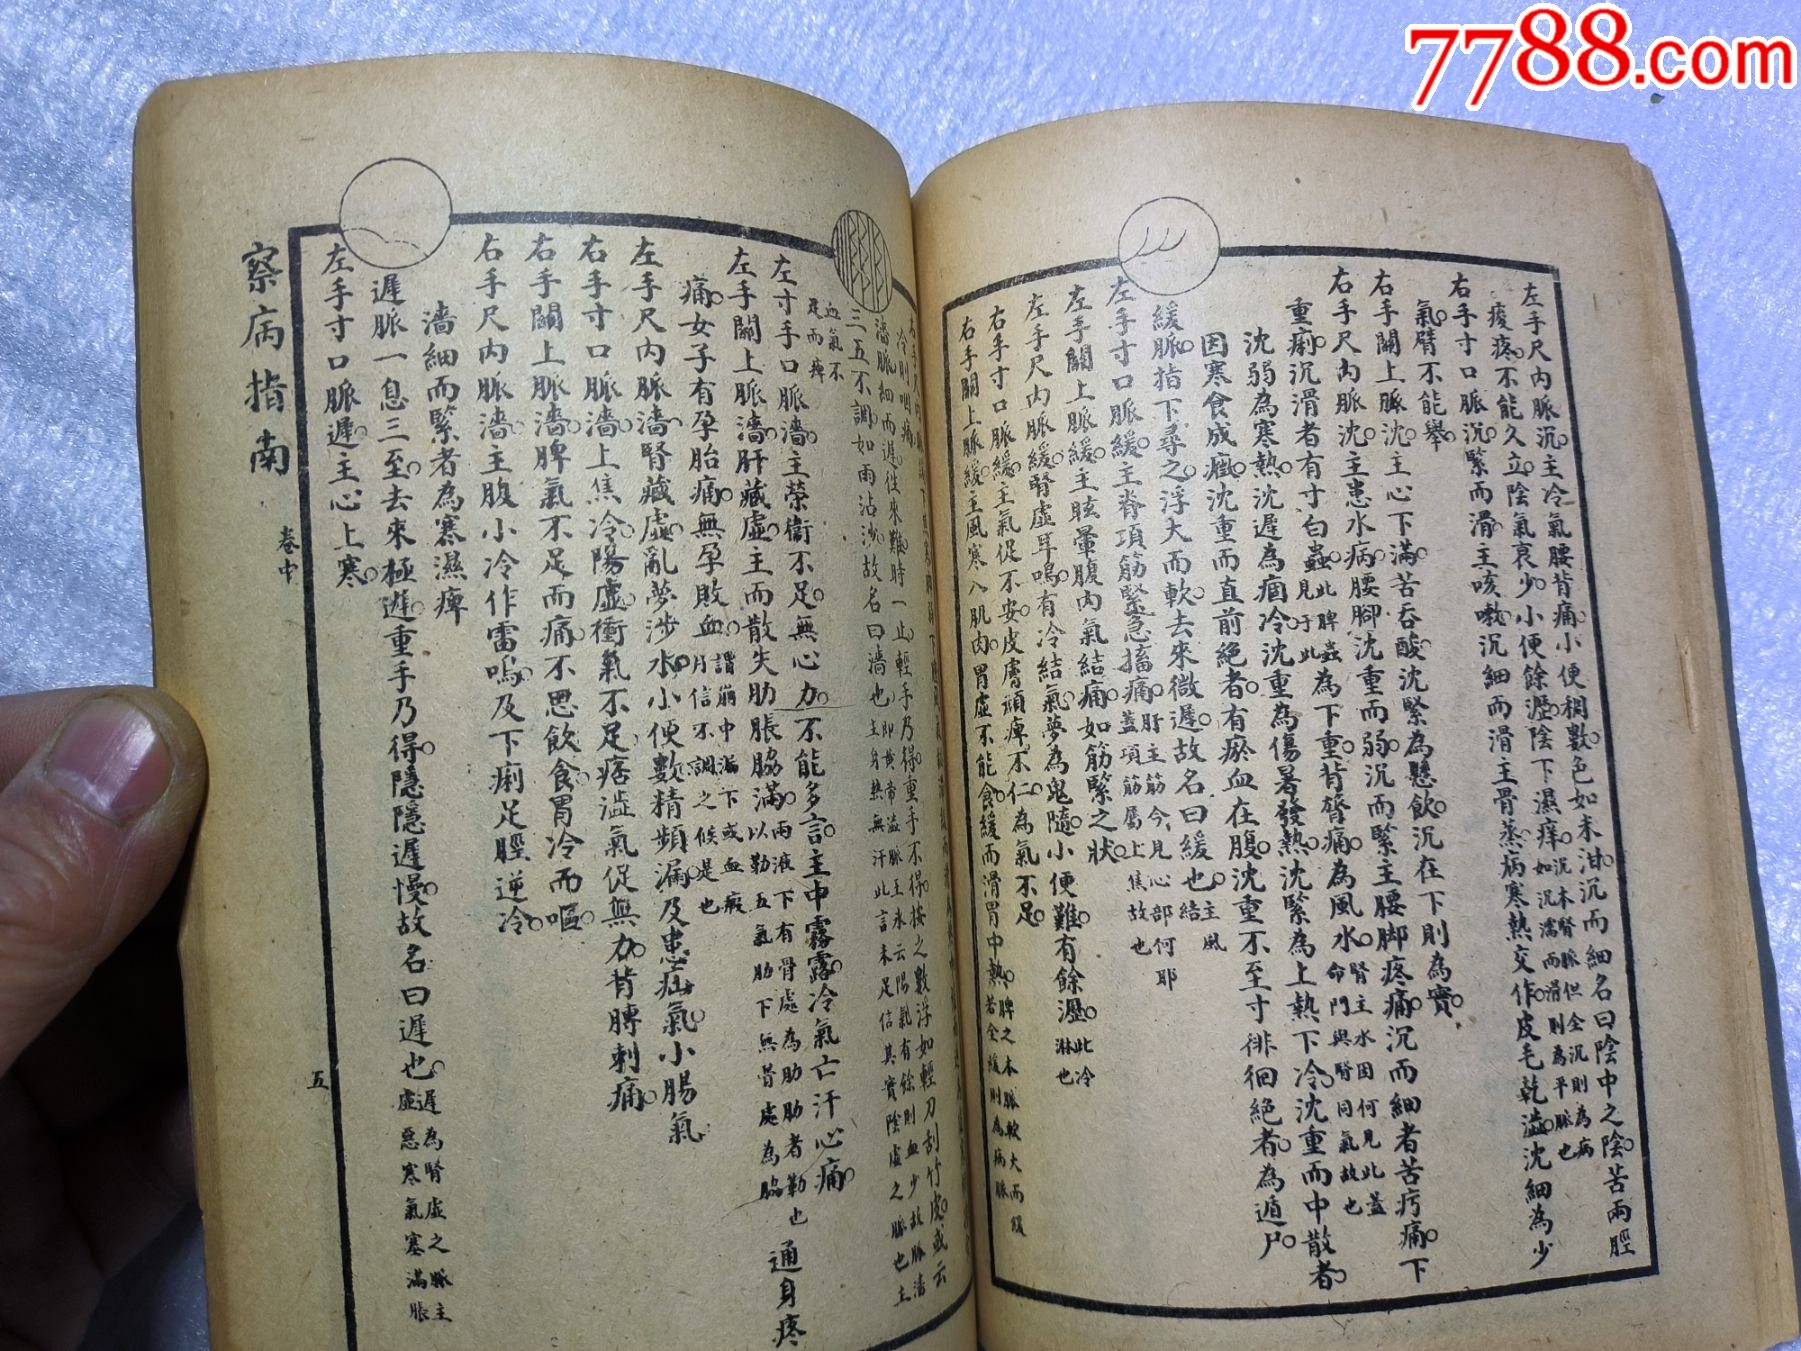 7788.com
左手尺內脈沉。主冷氣腰背痛。小便稠數。色如米泔。沉而細。名曰陰中之陰。苦兩脛
痠疼。不能久立。陰氣衰少。小便餘瀝。陰下濕痒。
右手寸口脈沉。緊而滑。主咳嗽。沉細而滑。主骨蒸病。寒熱交作。皮毛乾澁。沈細為少
氣。臂不能舉。
右手關上脈沈。主心下滿。苦吞酸。沈緊為懸飲。沉在下則為實。
右手尺內脈沈。主患水病。腰腳沈重而弱。沉而緊。主腰脚疼痛。沉而細者。苦疞痛。下
重痢。沉滑者。有寸白蟲。此脾蟲見于此為下重。背膂痛。為風水。腎主水因何見此蓋命門與腎同氣故也
沈弱為寒熱。沈遲為痼冷。沈重為傷暑發熱。沈緊為上熱下冷。沈重而中散者。
因寒食成瘕。沈重而直前絕者。有瘀血在腹。沈重不至寸。徘徊絕者。為遁尸。
緩脈。指下尋之。浮大而軟。去來微遲。故名曰緩也。
左手寸口脈緩。主脊項筋緊急搐痛。肝主筋今見心部何耶蓋項筋屬上焦故也
左手關上脈緩。主眩暈。腹內氣結痛。如筋緊之狀。
左手尺內脈緩。腎虛耳鳴。有冷結氣。夢為鬼隨。小便難。有餘瀝。此冷淋也
右手寸口脈緩。主氣促不安。皮膚頑痺不仁。為氣不足。
右手關上脈緩。主風寒入肌肉。胃虛不能食。緩而滑。胃中熱。脾之本脈軟大而緩若全緩則為病脈
濇脈。細而遲。往來難。時一止。輕手乃得。重手不得。按之數浮。如輕刀刮竹皮。或云
三五不調。如雨沾沙。故名曰濇也。
左寸手口脈濇。主榮衞不足。無心力。不能多言。主中霧露冷氣。亡汗心痛。
左手關上脈濇。肝藏虛。主而散失。肋脹脇滿。通身疼
痛。女子有孕胎痛。無孕敗血。
左手尺內脈濇。腎藏虛。亂夢涉水。小便數。精頻漏。及患疝氣。小腸氣
右手寸口脈濇。上焦冷。陽虛衝氣不足。痞澁氣促無力。背膊刺痛。
右手關上脈濇。脾氣不足而痛。不思飲食。胃冷而嘔。
右手尺內脈濇。主腹小冷作雷鳴。及下痢足脛逆冷。
濇細而緊者。為寒濕痺
遲脈。一息三至。去來極遲。重手乃得。隱隱遲慢。故名曰遲也。遲為腎虛之脈主虛惡寒氣塞滿脹
左手寸口脈遲。主心上寒。
察病指南
卷中
五